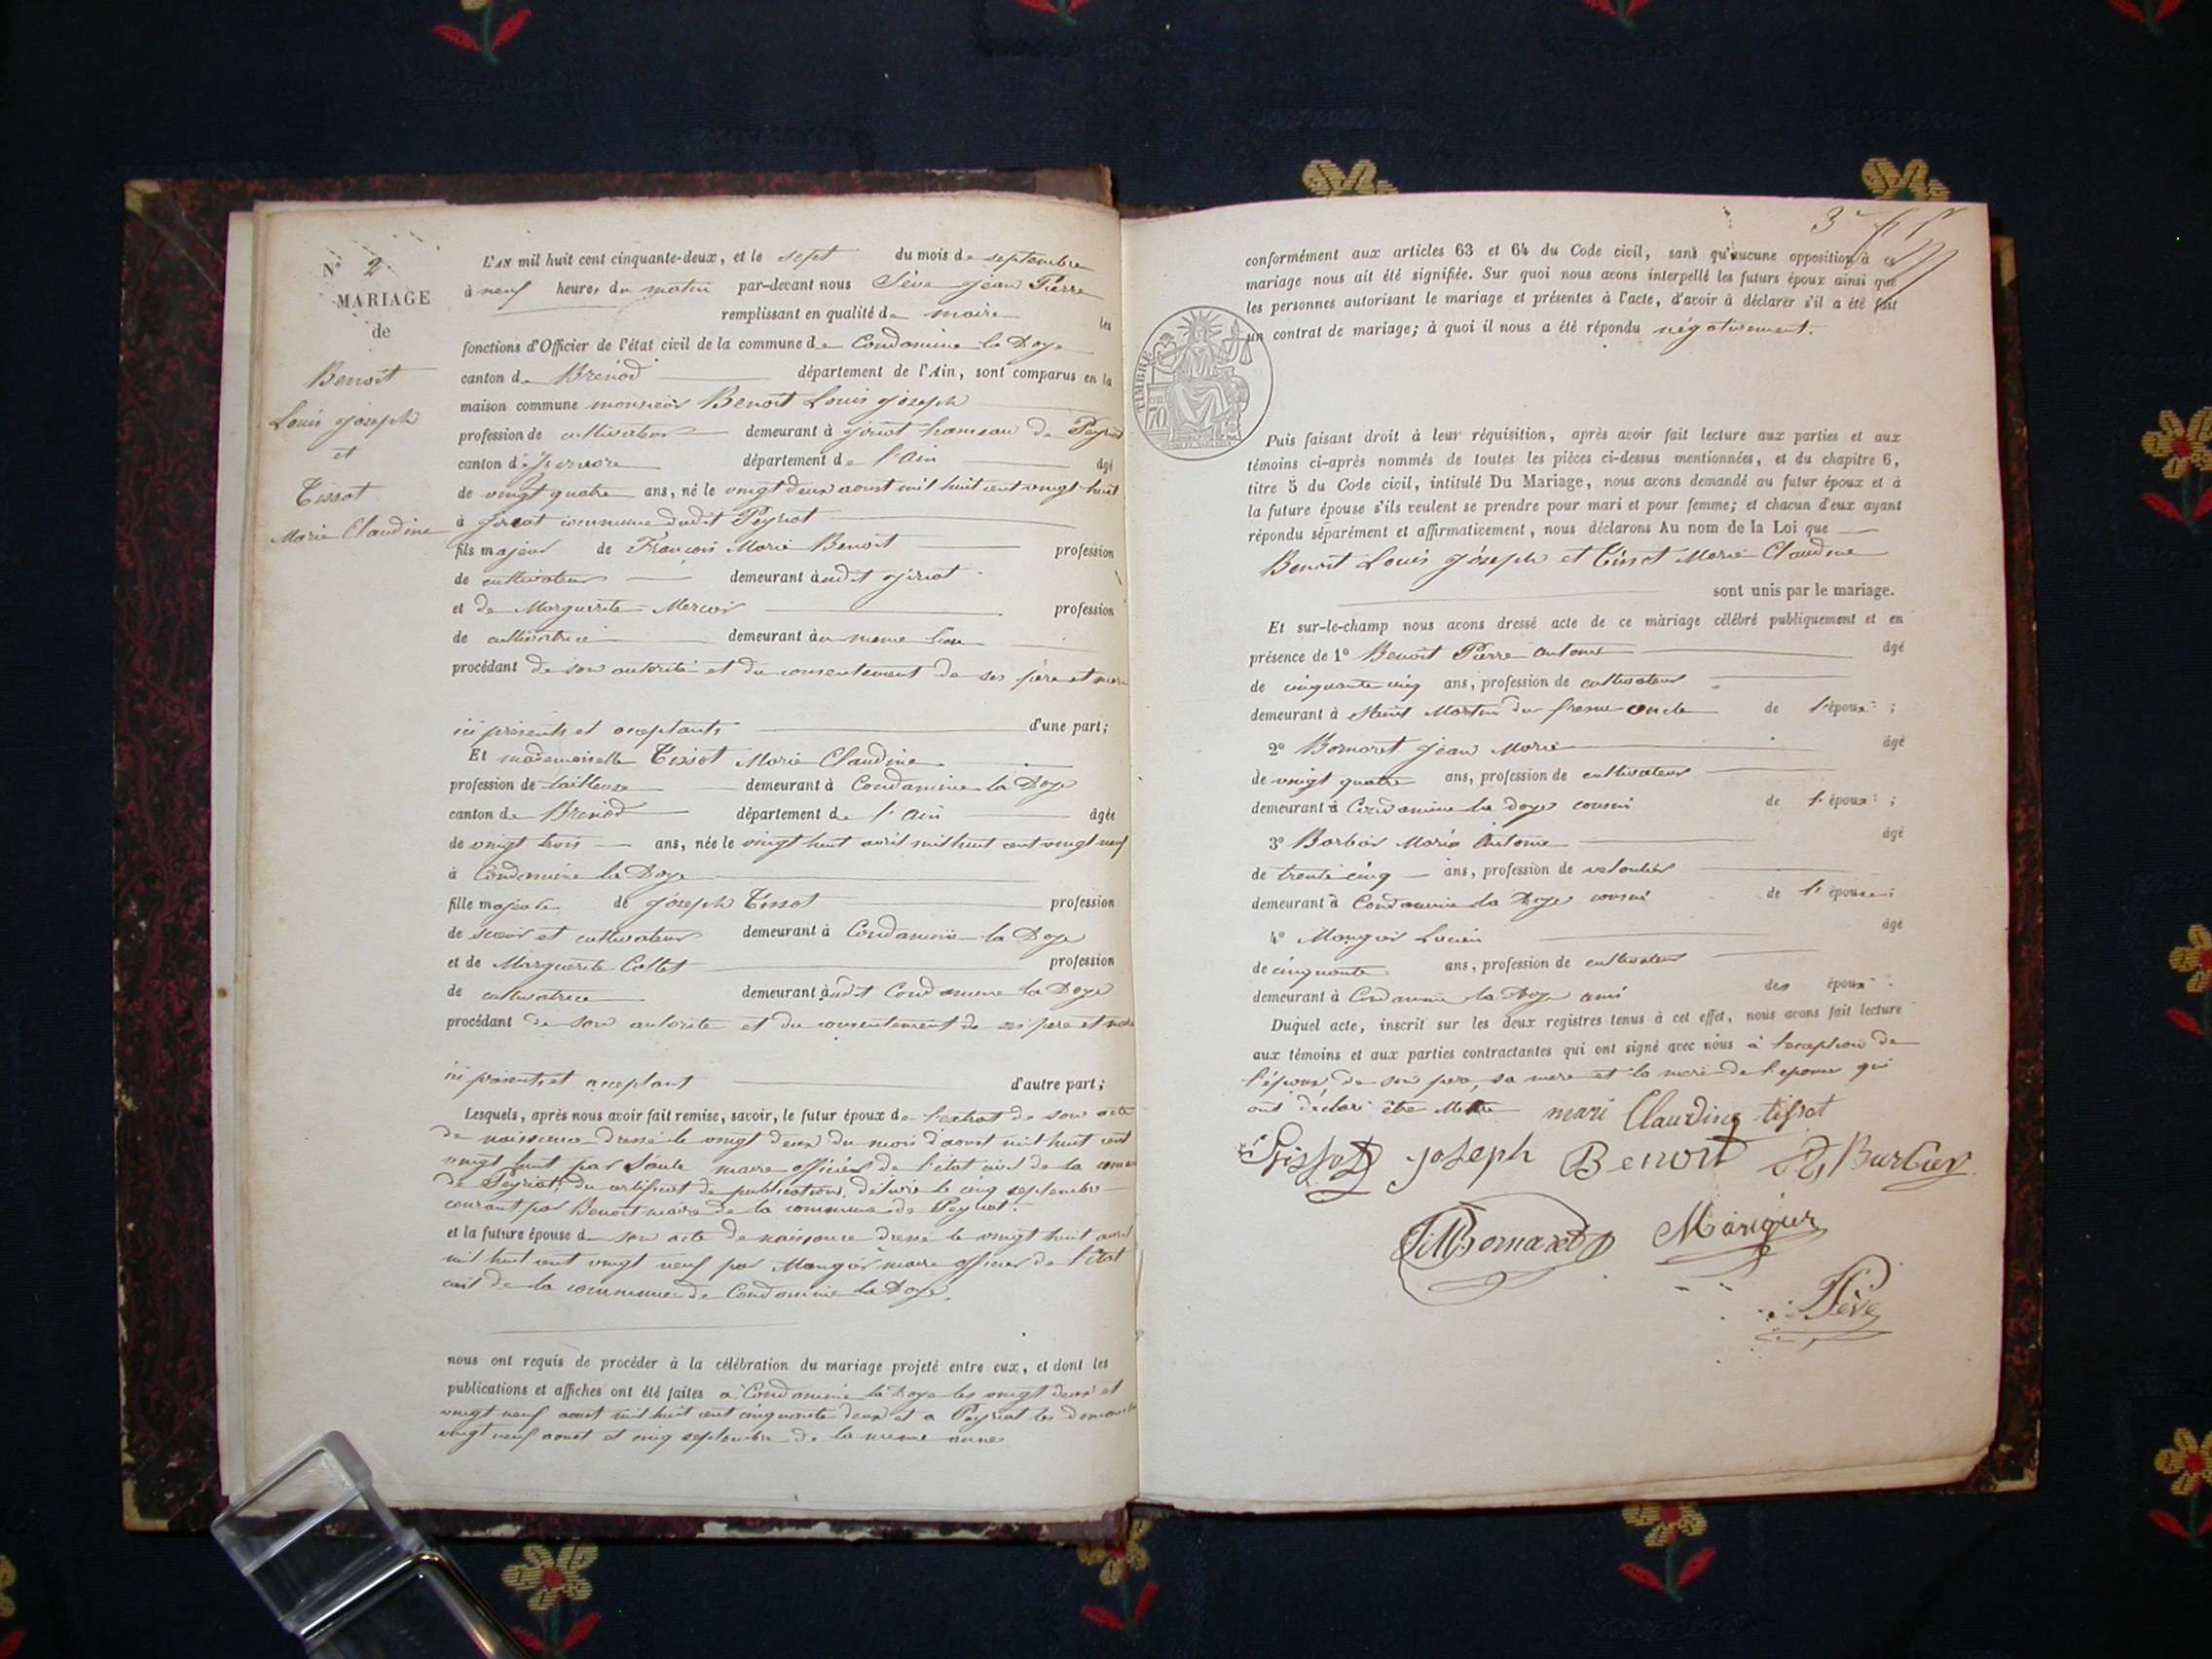 N° 2
MARIAGE
de
Benoît
Louis joseph
et
Tissot
Marie Claudine
L'AN mil huit cent cinquante-deux, et le sept du mois de septembre
à neuf heures du matin par-devant nous Sève jean Pierre
remplissant en qualité de maire les
fonctions d'Officier de l'état civil de la commune de Condamine la Doye
canton de Brénod département de l'Ain, sont comparus en la
maison commune monsieur Benoît Louis joseph
profession de cultivateur demeurant à giriat hameau de Peyriat
canton d'izernore département de l'Ain âgé
de vingt quatre ans, né le vingt deux aoust mil huit cent vingt huit
à giriat commune dudit Peyriat
fils majeur de François Marie Benoit profession
de cultivateur demeurant audit giriat
et de Marguerite Mercier profession
de cultivatrice demeurant au meme lieu
procédant de son autorité et du consentement de ses père et mere
ici présents et acceptants d'une part;
Et mademoiselle Tissot Marie Claudine
profession de tailleuse demeurant à Condamine la Doye
canton de Brénod département de l'Ain âgée
de vingt trois ans, née le vingt huit avril mil huit cent vingt neuf
à Condamine la Doye
fille majeure de joseph Tissot profession
de scieur et cultivateur demeurant à Condamine la Doye
et de Marguerite Collet profession
de cultivatrice demeurant audit Condamine la Doye
procédant de son autorité et du consentement de ses pere et mere
ici présents et acceptant d'autre part;
Lesquels, après nous avoir fait remise, savoir, le futur époux de l'extrait de son acte
de naissance dressé le vingt deux du mois d'aoust mil huit cent
vingt huit par maire officier de l'état civil de la
de Peyriat, du certificat de publications, délivré le cinq septembre
courant par Benoit maire de la commune de Peyriat.
et la future épouse de son acte de naissance dressé le vingt huit avril
mil huit cent vingt neuf par Mangier maire officier de l'état
civil de la commune de Condamine la Doye.
nous ont requis de procéder à la célébration du mariage projeté entre eux, et dont les
publications et affiches ont été faites à Condamine la Doye les vingt deux et
vingt neuf aoust mil huit cent cinquante deux et a Peyriat les dimanches
vingt neuf aoust et cinq septembre de la meme année
conformément aux articles 63 et 64 du Code civil, sans qu'aucune opposition à ce
mariage nous ait été signifiée. Sur quoi nous avons interpellé les futurs époux ainsi que
les personnes autorisant le mariage et présentes à l'acte, d'avoir à déclarer s'il a été fait
un contrat de mariage; à quoi il nous a été répondu négativement.
TIMBRE
70
Puis faisant droit à leur réquisition, après avoir fait lecture aux parties et aux
témoins ci-après nommés de toutes les pièces ci-dessus mentionnées, et du chapitre 6,
titre 5 du Code civil, intitulé Du Mariage, nous avons demandé au futur époux et à
la future épouse s'ils veulent se prendre pour mari et pour femme; et chacun d'eux ayant
répondu séparément et affirmativement, nous déclarons Au nom de la Loi que
Benoit Louis joseph et Tissot Marie Claudine
sont unis par le mariage.
Et sur-le-champ nous avons dressé acte de ce mariage célébré publiquement et en
présence de 1° Benoît Pierre antoine âgé
de cinquante cinq ans, profession de cultivateur
demeurant à Saint Martin du fresne oncle de l'époux;
2° Bornaret jean Marie âgé
de vingt quatre ans, profession de cultivateur
demeurant à Condamine la doye cousin de l'époux;
3° Barbier Marie Antoine âgé
de trente cinq ans, profession de
demeurant à Condamine la Doye cousin de l'épouse;
4° Mangier Lucien âgé
de cinquante ans, profession de cultivateur
demeurant à Condamine la Doye ami des époux.
Duquel acte, inscrit sur les deux registres tenus à cet effet, nous avons fait lecture
aux témoins et aux parties contractantes qui ont signé avec nous à l'exception de
l'époux, de son pere, sa mere et la mere de l'epouse qui
ont déclaré être
mari Claudine tissot
joseph Benoit Burbier
JMBornaret Mangier
Sève